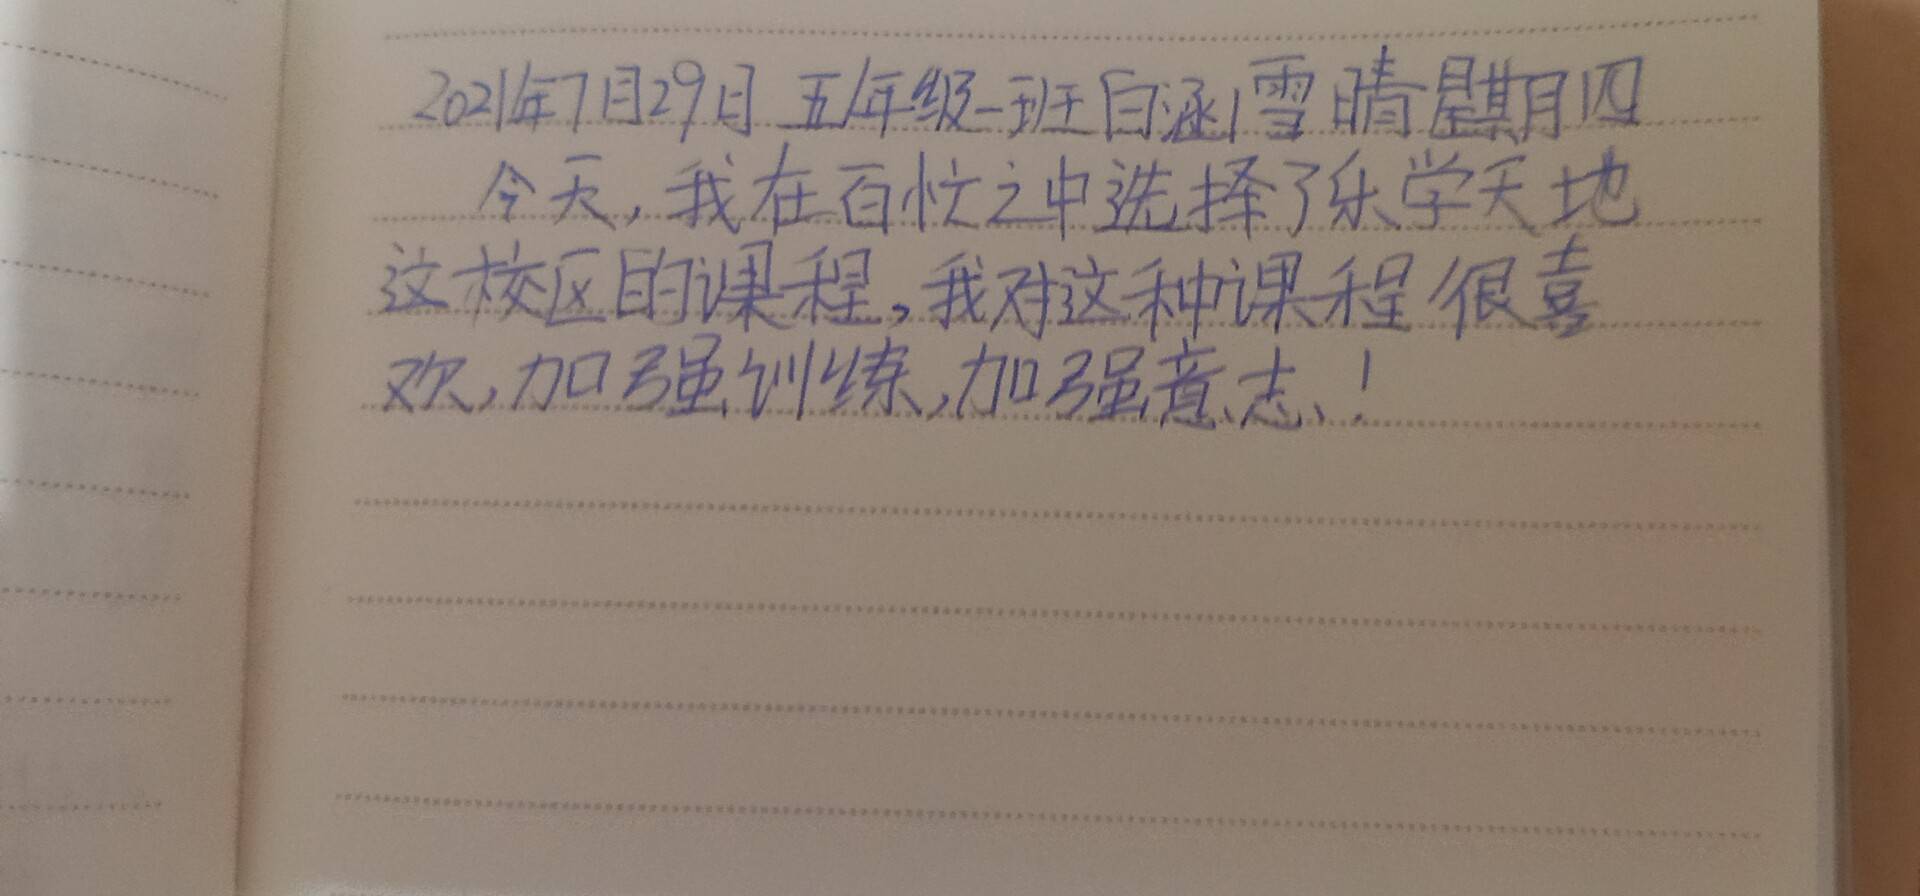 2021年7月29日 五年级一班白涵雪 晴 星期四
今天,我在百忙之中选择了乐学天地
这校区的课程,我对这种课程很喜
欢,加强训练,加强意志!